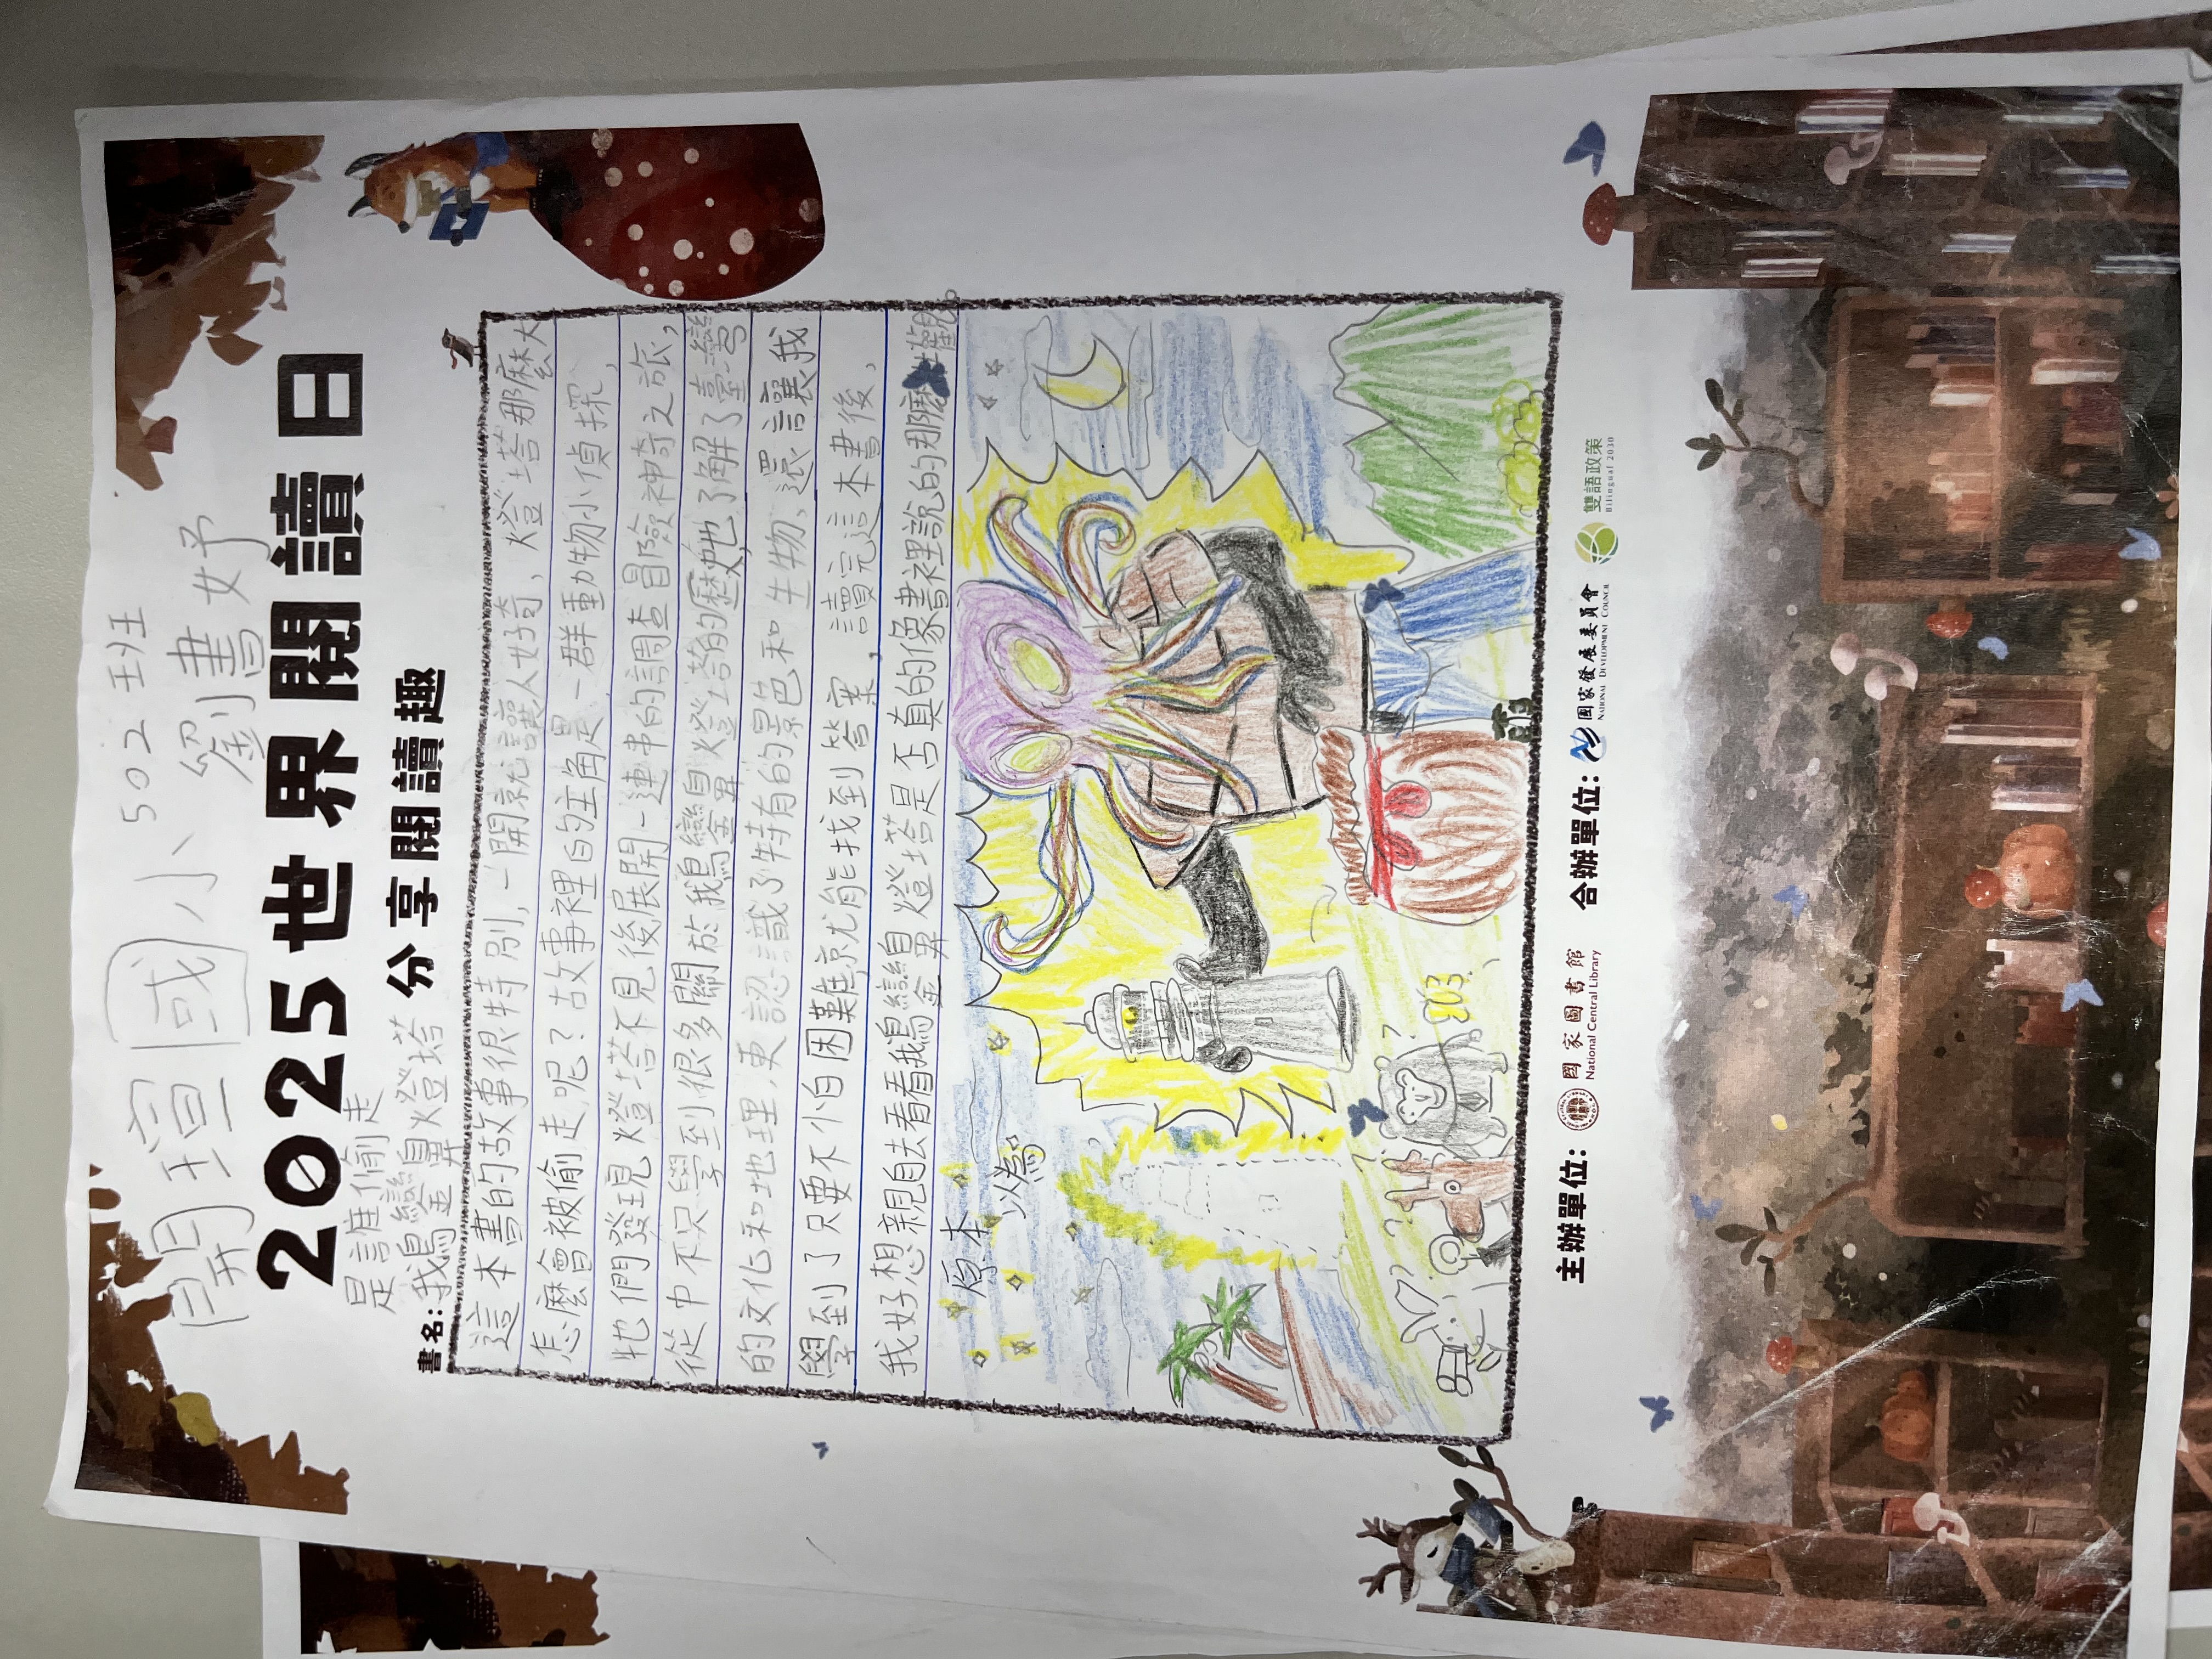 開瑄國小 502班
劉書妤
2025世界閱讀日
分享閱讀趣
是誰偷走
書名：鵝鑾鼻燈塔
這本書的故事很特別，一開京尤讓人好奇、燈塔那麼大
怎麼會被偷走呢？故事裡的主角是一群動物小偵探，
牠們發現燈塔不見後展開一連串的調查冒險神奇之旅，
從中不只學到很多關於鵝鑾鼻燈塔的歷史，也了解了臺灣
的文化和地理，更認識了特有的景色和生物、還讓我
學到了只要不怕困難京尤能找到答案，讀完這本書後、
我好想親自去看看鵝鑾鼻燈塔是否真的像書裡說的那麼壯觀。
原本
以為
主辦單位：國家圖書館 National Central Library
合辦單位：國家發展委員會 National Development Council
雙語政策 Bilingual 2030